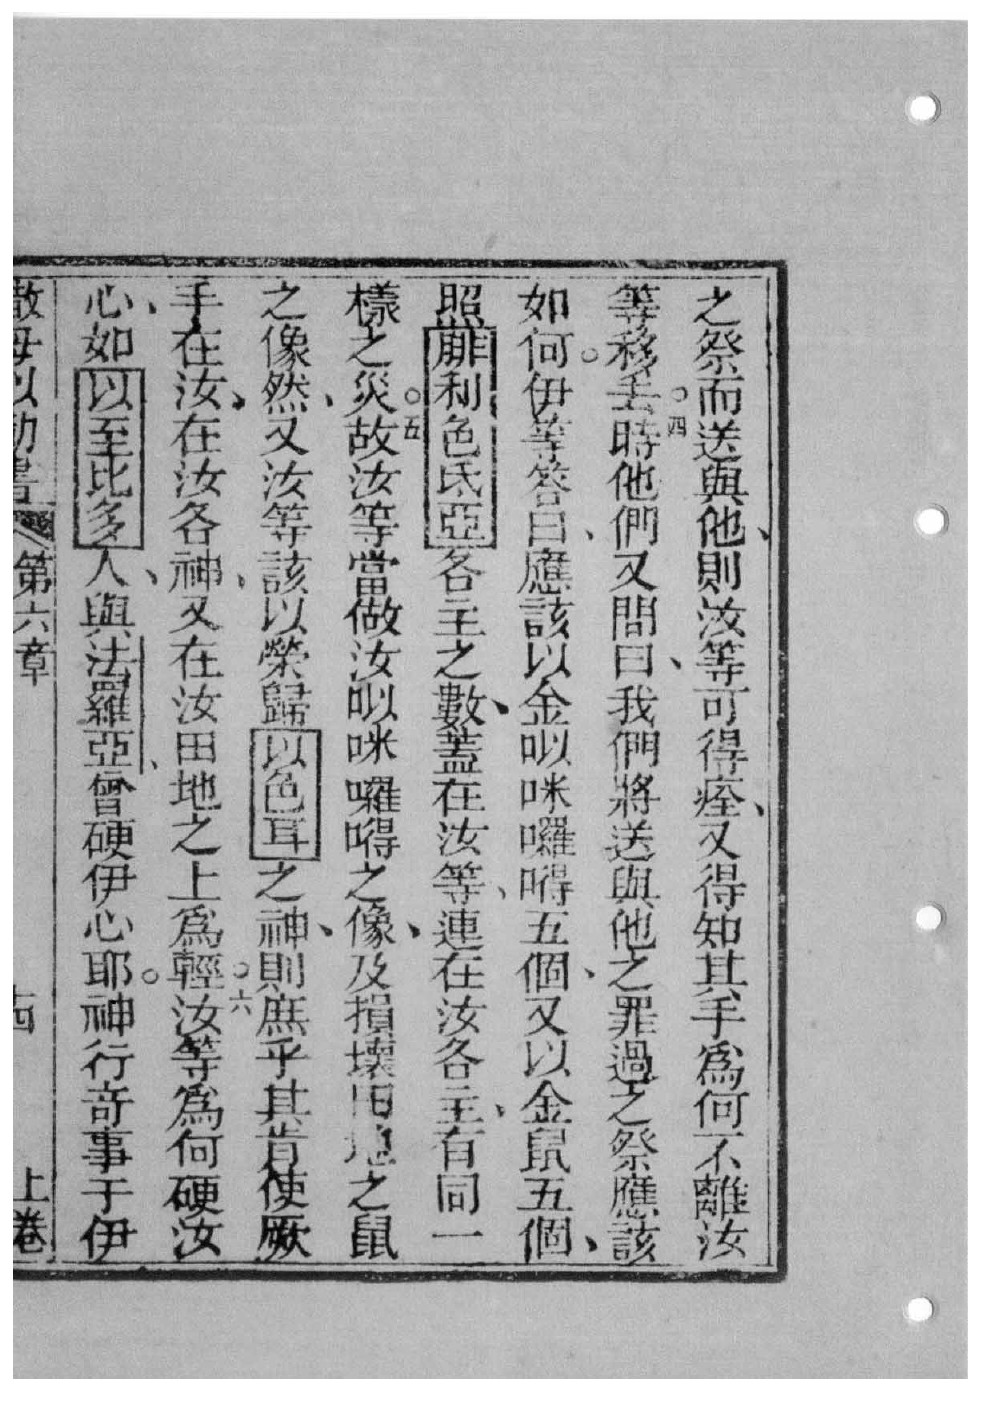 之祭而送與他、則汝等可得痊、又得知其手爲何不離汝
等移丟。四時他們又問曰、我們將送與他之罪過之祭應該
如何。伊等答曰、應該以金㕥咪囉嘚五個、又以金鼠五個、
照厞利色氐亞各主之數、蓋在汝等、連在汝各主、有同一
樣之災。五故汝等當做汝㕥咪囉嘚之像、及損壞田地之鼠
之像然、又汝等該以榮歸以色耳之神、則庶乎其肯使厥
手在汝、在汝各神、又在汝田地之上爲輕。六汝等爲何硬汝
心、如以至比多人、與法羅亞、曾硬伊心。耶神行奇事于伊
撒母以勒書 第六章 上卷